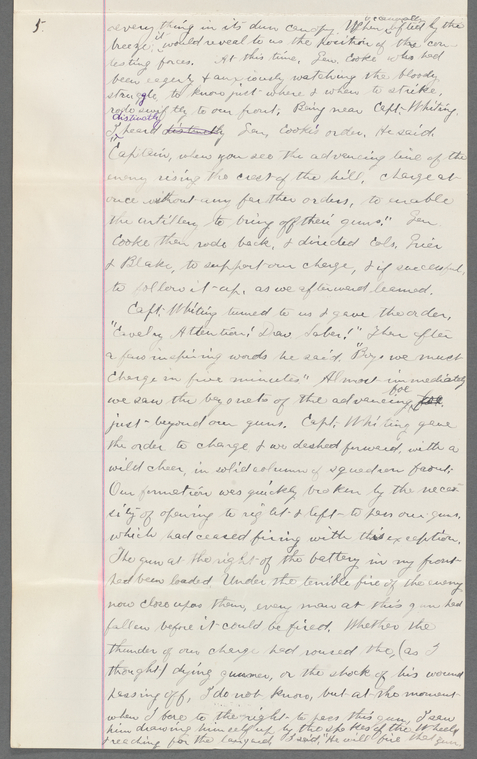 5
every thing in its dun canopy. When occasionally lifted by the
breeze, it would reveal to us the position of the con-
testing forces. At this time, Gen. Cooke who had
been eagerly & anxiously watching the bloody
struggle to know just where & when to strike,
rode swiftly to our front. Being near Capt. Whiting.
I heard distinctly Gen. Cooke's order, He said,
"Captain, when you see the advancing line of the
enemy rising the crest of the hill, charge at
once without any further orders, to enable
the artillery to bring off their guns." Gen.
Cooke then rode back, & divided Cols. Grier
& Blake, to support our charge, & if successful,
to follow it up, as we afterward learned.
Capt. Whiting turned to us & gave the order,
"Cavalry, Attention! Draw, Saber!" Then after
a few inspiring words he said, "Boys we must
charge in five minutes" Almost immediately
we saw the bayonets of the advancing foe
just beyond our guns. Capt. Whiting gave
the order to charge & we dashed forward, with a
wild cheer, in solid column of squadron front.
Our formation was quickly broken by the neces-
sity of opening to right & left to pass our guns,
which had ceased firing with this exception.
The gun at the right of the battery in my front
had been loaded Under the terrible fire of the enemy
now close upon them, every man at this gun had
fallen before it could be fired. Whether the
thunder of our charge had roused the, (as I
thought) dying gunner, or the shock of his wound
passing off, I do not know, but at the moment
when I bore to the right to pass this gun, I saw
him drawing himself up by the spokes of the wheels
& reaching for the lanyard, I said, "He will fire that gun